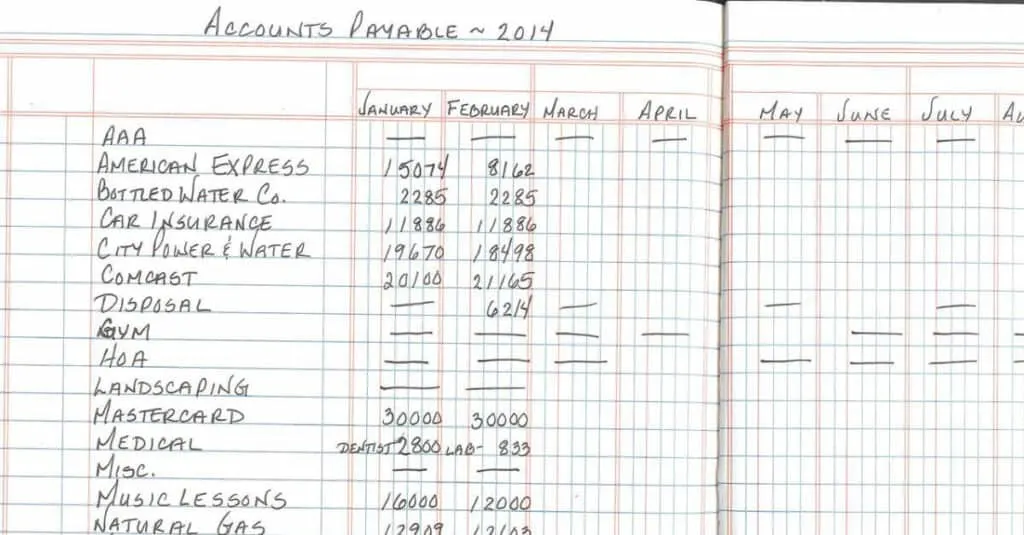 ACCOUNTS PAYABLE ~ 2014
JANUARY FEBRUARY MARCH APRIL MAY JUNE JULY
AAA — — — — — — —
AMERICAN EXPRESS 15074 8162
BOTTLED WATER CO. 2285 2285
CAR INSURANCE 11886 11886
CITY POWER & WATER 19670 18498
COMCAST 20100 21165
DISPOSAL — 6214 — — —
GYM — — — — — —
HOA — — — — — —
LANDSCAPING — —
MASTERCARD 30000 30000
MEDICAL DENTIST 2800 LAB- 833
MISC. — —
MUSIC LESSONS 16000 12000
NATURAL GAS 12909 12103